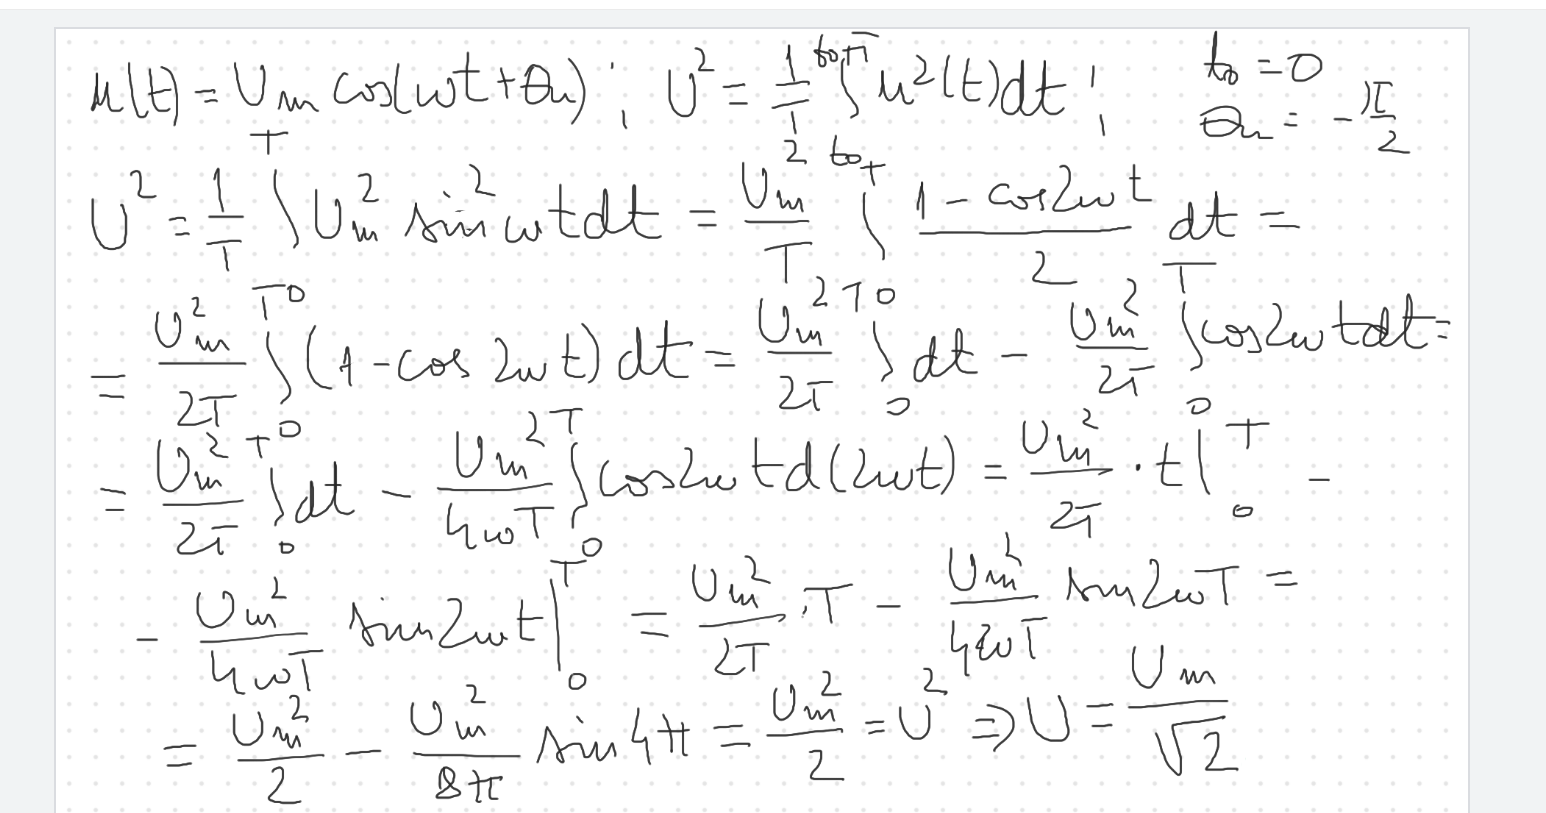 u(t) = U_m cos(ωt+θ_u) ; U² = 1/T ∫_{t₀}^{t₀+T} u²(t)dt ; t₀ = 0
θ_u = -π/2
U² = 1/T ∫_0^T U_m² sin²ωt dt = U_m²/T ∫_0^T (1 - cos2ωt)/2 dt =
= U_m²/2T ∫_0^T (1 - cos 2ωt) dt = U_m²/2T ∫_0^T dt - U_m²/2T ∫_0^T cos2ωt dt =
= U_m²/2T ∫_0^T dt - U_m²/4ωT ∫_0^T cos2ωt d(2ωt) = U_m²/2T · t |_0^T -
- U_m²/4ωT sin2ωt |_0^T = U_m²/2T · T - U_m²/4ωT sin2ωT =
= U_m²/2 - U_m²/8π sin4π = U_m²/2 = U² ⇒ U = U_m/√2